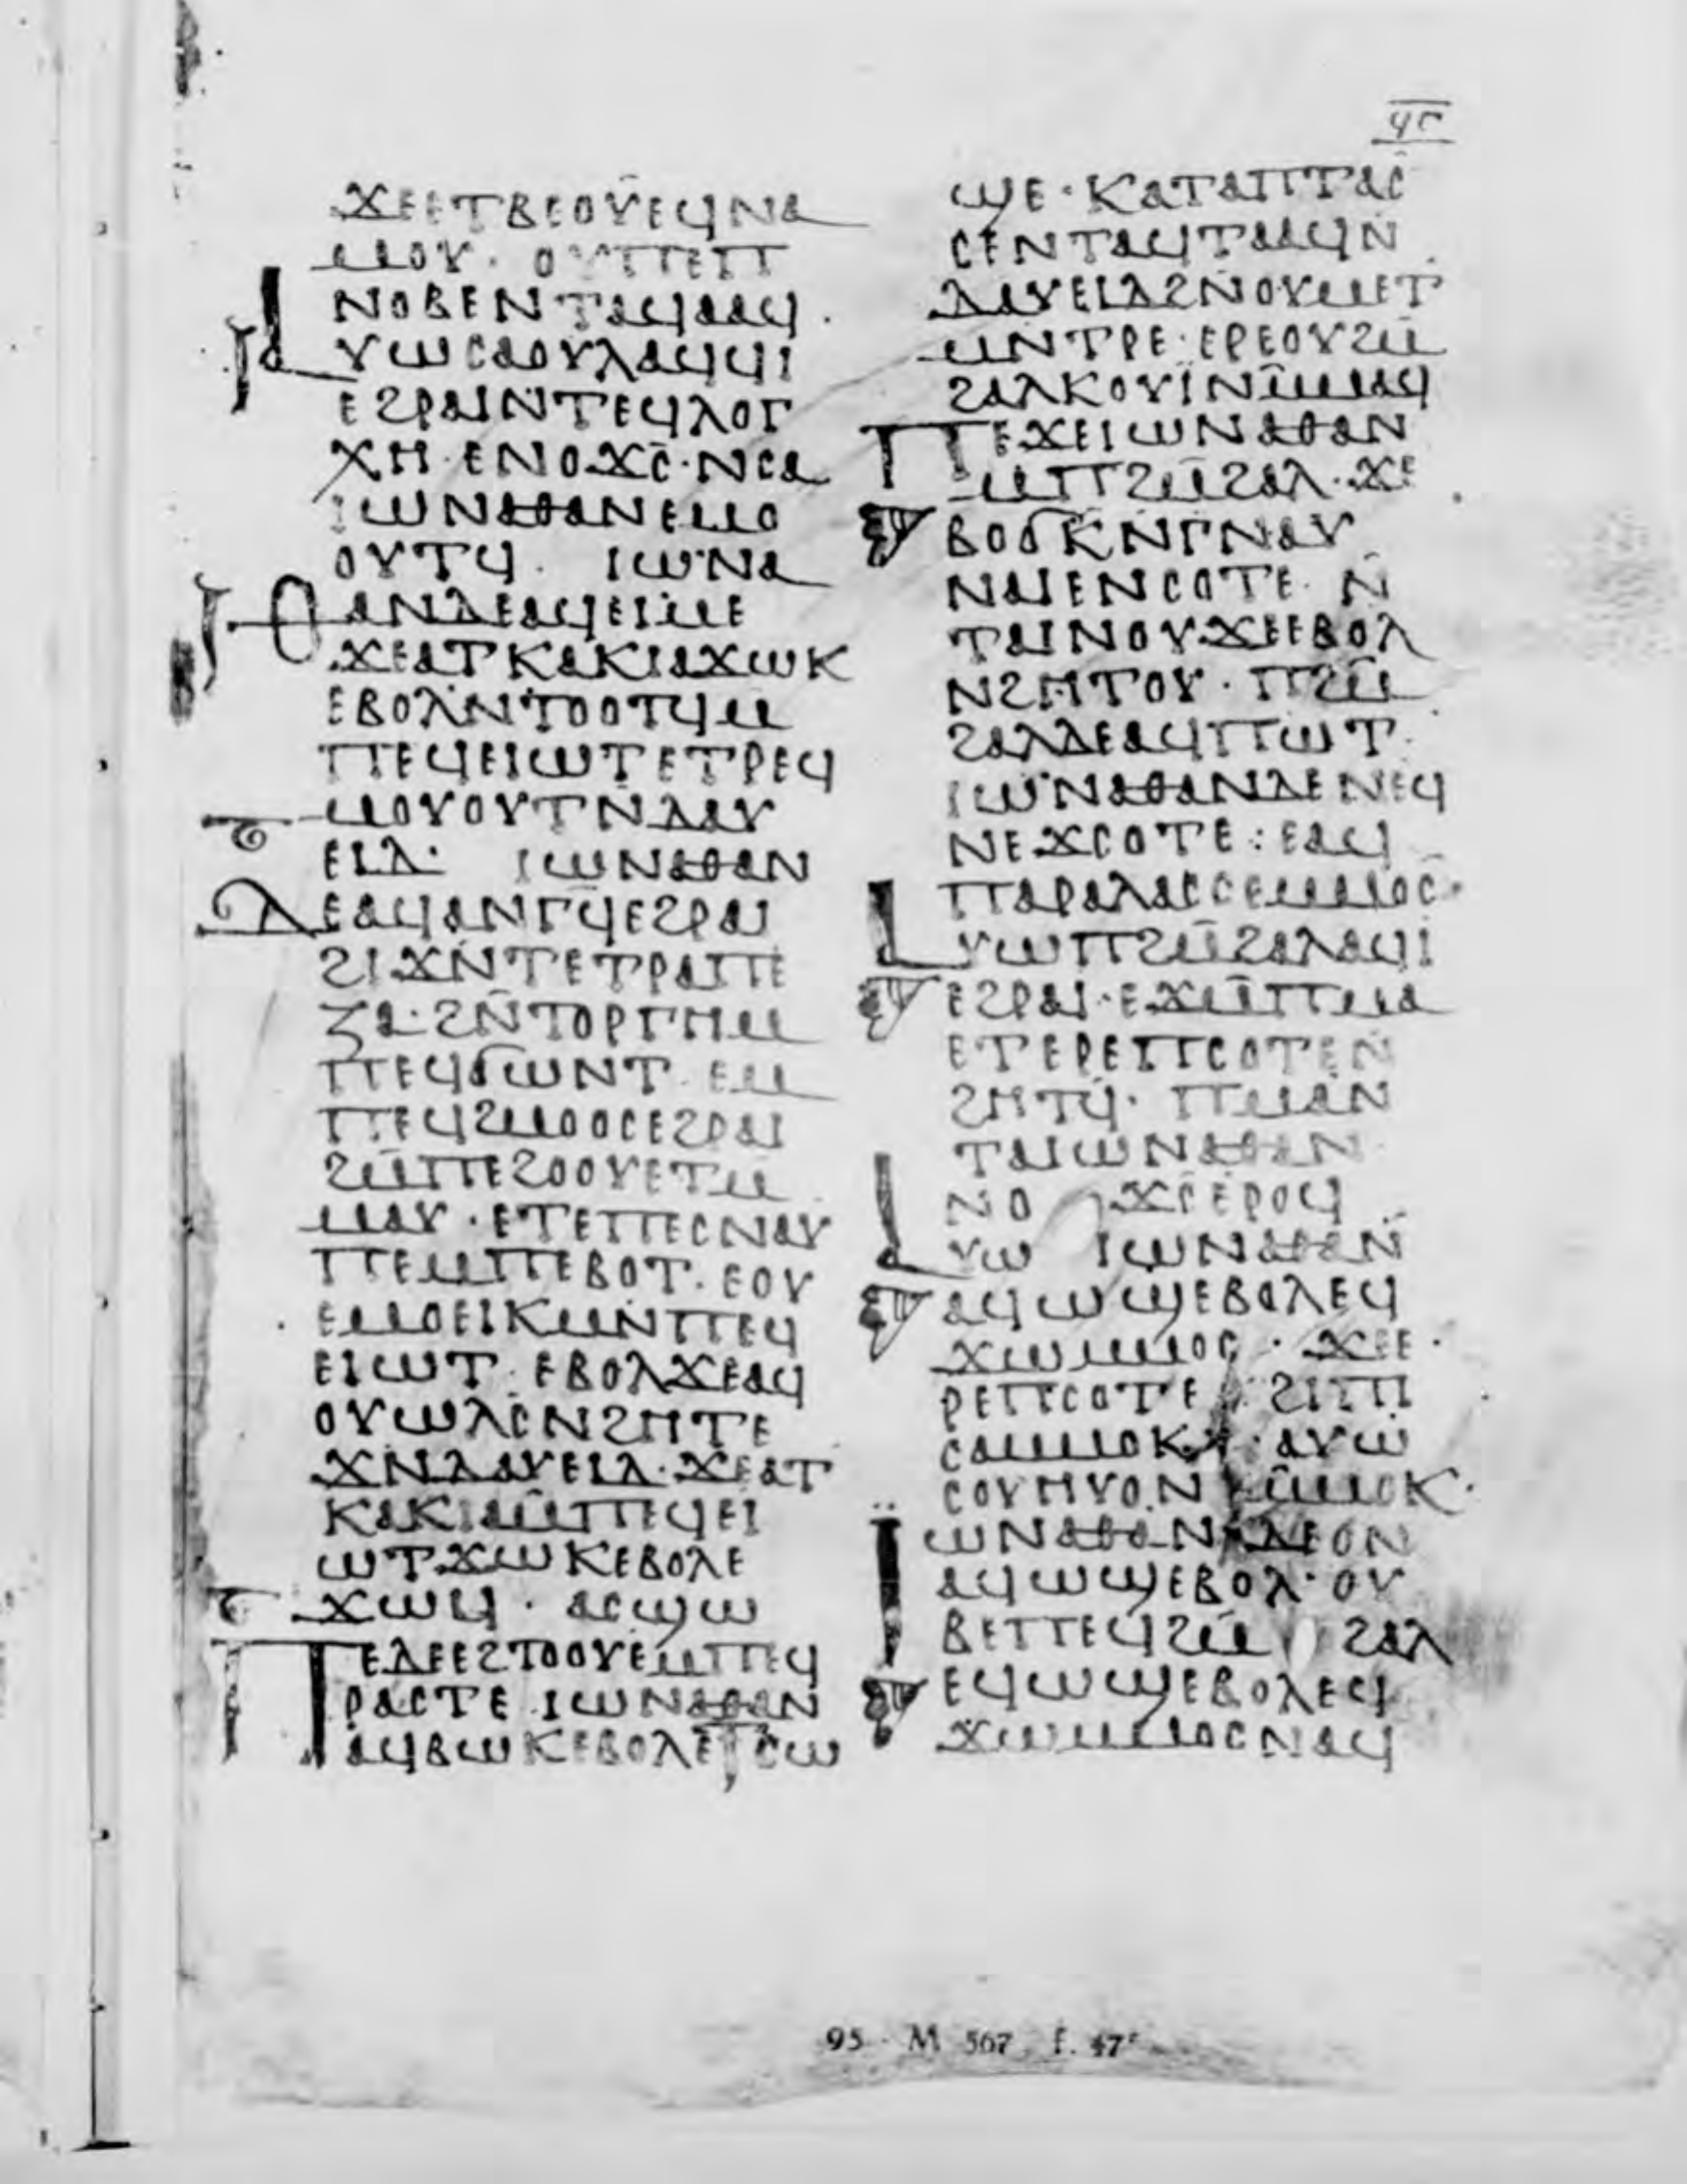 ϥⲅ
ϫⲉⲉⲧⲃⲉⲟⲩⲉϥⲛⲁ
ⲙⲟⲩ · ⲟⲩⲡⲉⲡ
ⲛⲟⲃⲉⲛⲧⲁϥⲁⲁϥ ·
ⲁⲩⲱⲥⲁⲟⲩⲗⲁϥϥⲓ
ⲉϩⲣⲁⲓⲛⲧⲉϥⲗⲟⲅ
ⲭⲏ · ⲉⲛⲟϫⲥ̄ · ⲛⲥⲁ
ⲓⲱⲛⲁⲑⲁⲛⲉⲙⲟ
ⲟⲩⲧϥ · ⲓⲱⲛⲁ
ⲑⲁⲛⲇⲉⲁϥⲉⲓⲙⲉ
ϫⲉⲁⲧⲕⲁⲕⲓⲁϫⲱⲕ
ⲉⲃⲟⲗⲛⲧⲟⲟⲧϥⲙ
ⲡⲉϥⲉⲓⲱⲧⲉⲧⲣⲉϥ
ⲙⲟⲩⲟⲩⲧⲛⲇⲁⲩ
ⲉⲓⲇ · ⲓⲱⲛⲁⲑⲁⲛ
ⲇⲉⲁϥⲁⲛⲅϥⲉϩⲣⲁⲓ
ϩⲓϫⲛⲧⲉⲧⲣⲁⲡⲉ
ⲍⲁ · ϩⲛ̄ⲧⲟⲣⲅⲏⲙ
ⲡⲉϥϭⲱⲛⲧ · ⲉⲙ
ⲡⲉϥϩⲙⲟⲟⲥⲉϩⲣⲁⲓ
ϩⲙ̄ⲡⲉϩⲟⲟⲩⲉⲧⲙ
ⲙⲁⲩ · ⲉⲧⲉⲡⲉⲥⲛⲁⲩ
ⲡⲉⲙⲡⲉⲃⲟⲧ · ⲉⲟⲩ
ⲉⲙⲟⲉⲓⲕⲙⲛⲡⲉϥ
ⲉⲓⲱⲧ · ⲉⲃⲟⲗϫⲉⲁϥ
ⲟⲩⲱⲗⲥⲛϩⲏⲧⲉ
ϫⲛⲇⲁⲩⲉⲓⲇ · ϫⲉⲁⲧ
ⲕⲁⲕⲓⲁⲙ̄ⲡⲉϥⲉⲓ
ⲱⲧϫⲱⲕⲉⲃⲟⲗⲉ
ϫⲱϥ · ⲁⲥϣⲱ
ⲡⲉⲇⲉⲉϩⲧⲟⲟⲩⲉⲙⲡⲉϥ
ⲣⲁⲥⲧⲉ · ⲓⲱⲛⲁⲑⲁⲛ
ⲁϥⲃⲱⲕⲉⲃⲟⲗⲉⲧⲥⲱ
ϣⲉ · ⲕⲁⲧⲁⲡⲧⲁⲥ
ⲥⲉⲛⲧⲁϥⲧⲁⲁϥⲛ
ⲇⲁⲩⲉⲓⲇϩⲛⲟⲩⲙⲉⲧ
ⲙⲛⲧⲣⲉ · ⲉⲣⲉⲟⲩϩⲙ̄
ϩⲁⲗⲕⲟⲩⲓⲛⲙ̄ⲙⲁϥ
ⲡⲉϫⲉⲓⲱⲛⲁⲑⲁⲛ
ⲙⲡϩⲙ̄ϩⲁⲗ · ϫⲉ
ⲃⲟϭⲕⲛⲅⲛⲁⲩ
ⲛⲁⲓⲉⲛⲥⲟⲧⲉ · ⲛ̄
ⲧⲁⲓⲛⲟⲩϫⲉⲉⲃⲟⲗ
ⲛϩⲏⲧⲟⲩ · ⲡϩⲙ̄
ϩⲁⲗⲇⲉⲁϥⲡⲱⲧ ·
ⲓⲱⲛⲁⲑⲁⲛⲇⲉⲛⲉϥ
ⲛⲉϫⲥⲟⲧⲉ : ⲉⲁϥ
ⲡⲁⲣⲁⲗⲁⲥⲥⲉⲙⲙⲟⲥ ·
ⲁⲩⲱⲡϩⲙ̄ϩⲁⲗⲁϥⲓ
ⲉϩⲣⲁⲓ · ⲉϫⲙ̄ⲡⲙⲁ
ⲉⲧⲉⲣⲉⲡⲥⲟⲧⲉⲛ
ϩⲏⲧϥ · ⲡⲙⲁⲛ
ⲧⲁⲓⲱⲛⲁⲑⲁⲛ
ⲛⲟ ϫⲥⲉⲣⲟϥ
ⲁⲩⲱ ⲓⲱⲛⲁⲑⲁⲛ
ⲁϥⲱϣⲉⲃⲟⲗⲉϥ
ϫⲱⲙⲙⲟⲥ · ϫⲉⲉ ·
ⲣⲉⲡⲥⲟⲧⲉ ϩⲓⲡⲓ
ⲥⲁⲙⲙⲟⲕ · ⲁⲩⲱ
ⲥⲟⲩⲏⲩⲟⲛ ⲙ̄ⲙⲟⲕ ·
ⲓ̈ⲱⲛⲁⲑⲁⲛⲇⲉⲟⲛ
ⲁϥⲱϣⲉⲃⲟⲗ · ⲟⲩ
ⲃⲉⲡⲉϥϩⲙ̄ ϩⲁⲗ
ⲉϥⲱϣⲉⲃⲟⲗⲉϥ
ϫⲱⲙⲙⲟⲥⲛⲁϥ
95 · M 567, f. 47ʳ